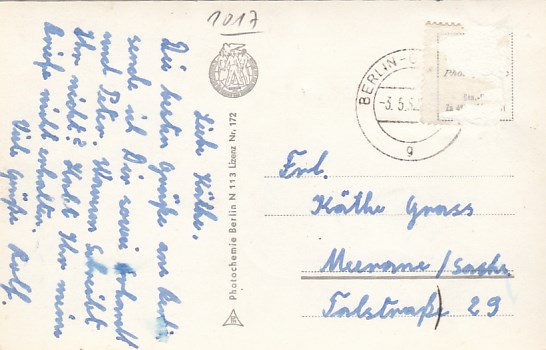 1017
Liebe Käthe.
Die besten Grüße aus Berlin
sende ich Dir sowie
und Peter. Warum schreibt
Ihr nicht? Habt Ihr meine
Briefe nicht erhalten.
Viele Grüße Rolf.
Photochemie Berlin N 113 Lizenz Nr. 172
BERLIN-
-3.5.5
g
Frl.
Käthe Grass
Meerane/Sachs.
Talstraße 29